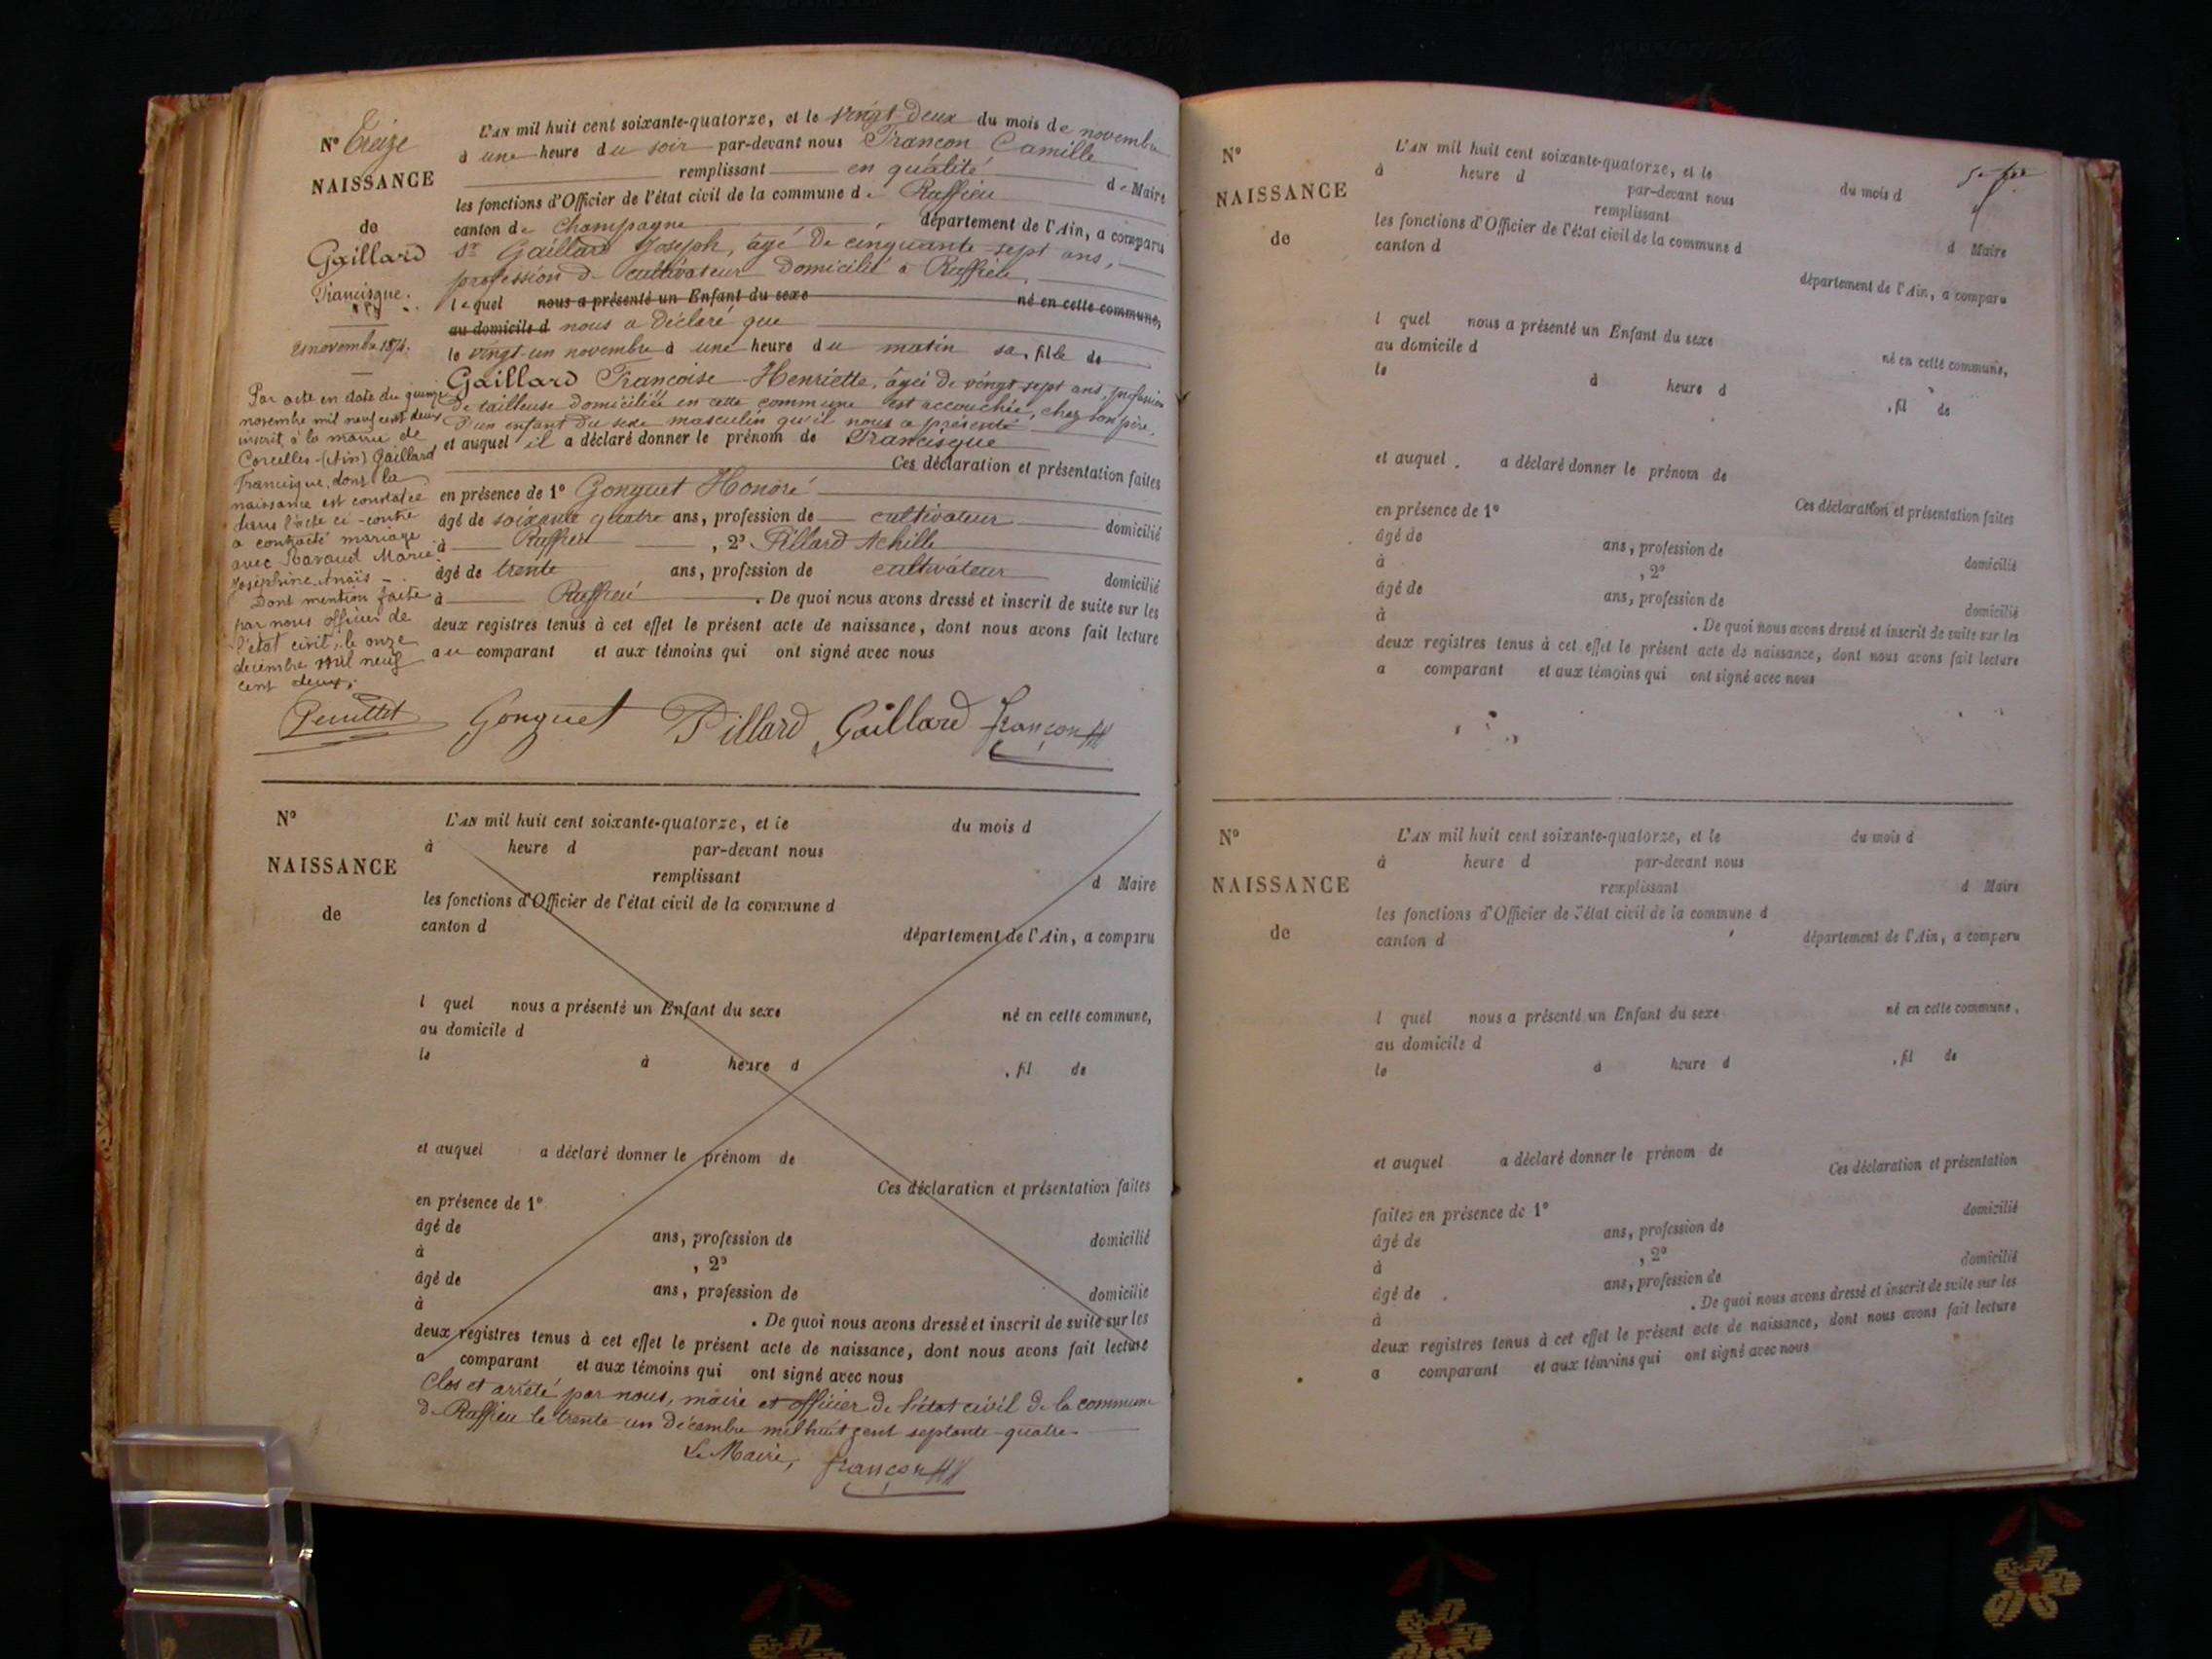 N° Treize
NAISSANCE
de
Gaillard
Francisque.
21 novembre 1874.
Par acte en date du quinze
novembre mil neuf cent deux
inscrit à la mairie de
Corcelles-(Ain) Gaillard
Francisque, dont la
naissance est constatée
dans l'acte ci-contre
a contracté mariage
avec Marie
Joséphine Anaïs
Dont mention faite
par nous officier de
l'état civil, le onze
décembre mil neuf
cent deux,
L'AN mil huit cent soixante-quatorze, et le vingt-deux du mois de novembre
à une heure du soir par-devant nous Françon Camille
remplissant en qualité de Maire
les fonctions d'Officier de l'état civil de la commune de Ruffieu
canton de Champagne, département de l'Ain, a comparu
Sr Gaillard Joseph, âgé de cinquante-sept ans,
profession de cultivateur domicilié à Ruffieu,
lequel nous a présenté un Enfant du sexe né en cette commune,
au domicile d nous a déclaré que
le vingt-un novembre à une heure du matin sa fille de
Gaillard Françoise Henriette, âgée de vingt sept ans, profession
de tailleuse domiciliée en cette commune est accouchée, chez son père,
d'un enfant du sexe masculin qu'il nous a présenté
et auquel il a déclaré donner le prénom de Francisque
Ces déclaration et présentation faites
en présence de 1° Gonguet Honoré
âgé de soixante quatre ans, profession de cultivateur domicilié
à Ruffieu, 2° Pillard Achille
âgé de trente ans, profession de cultivateur domicilié
à Ruffieu. De quoi nous avons dressé et inscrit de suite sur les
deux registres tenus à cet effet le présent acte de naissance, dont nous avons fait lecture
au comparant et aux témoins qui ont signé avec nous
Gonguet Pillard Gaillard Françon
N°
NAISSANCE
de
L'AN mil huit cent soixante-quatorze, et le du mois d
à heure d par-devant nous
remplissant d Maire
les fonctions d'Officier de l'état civil de la commune d
canton d département de l'Ain, a comparu
l quel nous a présenté un Enfant du sexe né en cette commune,
au domicile d
le à heure d , fil de
et auquel a déclaré donner le prénom de
Ces déclaration et présentation faites
en présence de 1°
âgé de ans, profession de domicilié
à , 2°
âgé de ans, profession de domicilié
à . De quoi nous avons dressé et inscrit de suite sur les
deux registres tenus à cet effet le présent acte de naissance, dont nous avons fait lecture
a comparant et aux témoins qui ont signé avec nous
Clos et arrêté par nous, maire et officier de l'état civil de la commune
de Ruffieu le trente-un décembre mil huit cent septante-quatre.
Le Maire, Françon
N°
NAISSANCE
de
L'AN mil huit cent soixante-quatorze, et le du mois d
à heure d par-devant nous
remplissant d Maire
les fonctions d'Officier de l'état civil de la commune d
canton d département de l'Ain, a comparu
l quel nous a présenté un Enfant du sexe né en cette commune,
au domicile d
le à heure d , fil de
et auquel a déclaré donner le prénom de
Ces déclaration et présentation faites
en présence de 1°
âgé de ans, profession de domicilié
à , 2°
âgé de ans, profession de domicilié
à . De quoi nous avons dressé et inscrit de suite sur les
deux registres tenus à cet effet le présent acte de naissance, dont nous avons fait lecture
a comparant et aux témoins qui ont signé avec nous
N°
NAISSANCE
de
L'AN mil huit cent soixante-quatorze, et le du mois d
à heure d par-devant nous
remplissant d Maire
les fonctions d'Officier de l'état civil de la commune d
canton d département de l'Ain, a comparu
l quel nous a présenté un Enfant du sexe né en cette commune,
au domicile d
le à heure d , fil de
et auquel a déclaré donner le prénom de
Ces déclaration et présentation
faites en présence de 1° domicilié
âgé de ans, profession de
à , 2° domicilié
âgé de ans, profession de
à . De quoi nous avons dressé et inscrit de suite sur les
deux registres tenus à cet effet le présent acte de naissance, dont nous avons fait lecture
a comparant et aux témoins qui ont signé avec nous